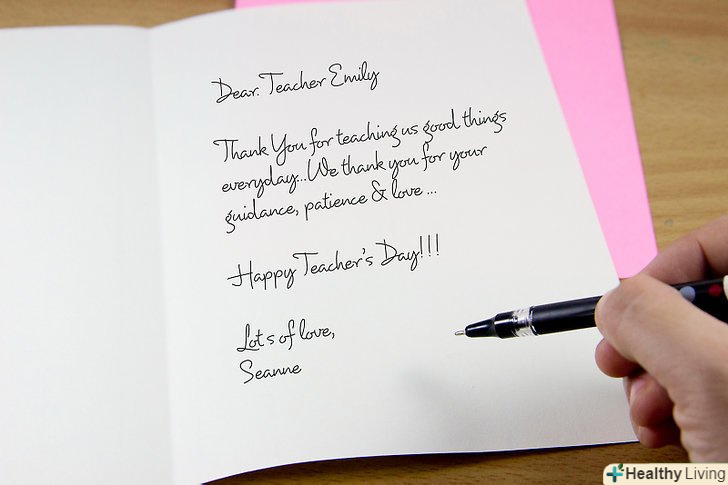 Dear. Teacher Emily
Thank You for teaching us good things
everyday...We thank you for your
guidance, patience & love ...
Happy Teacher's Day!!!
Lots of love,
Seanne
Healthy Living